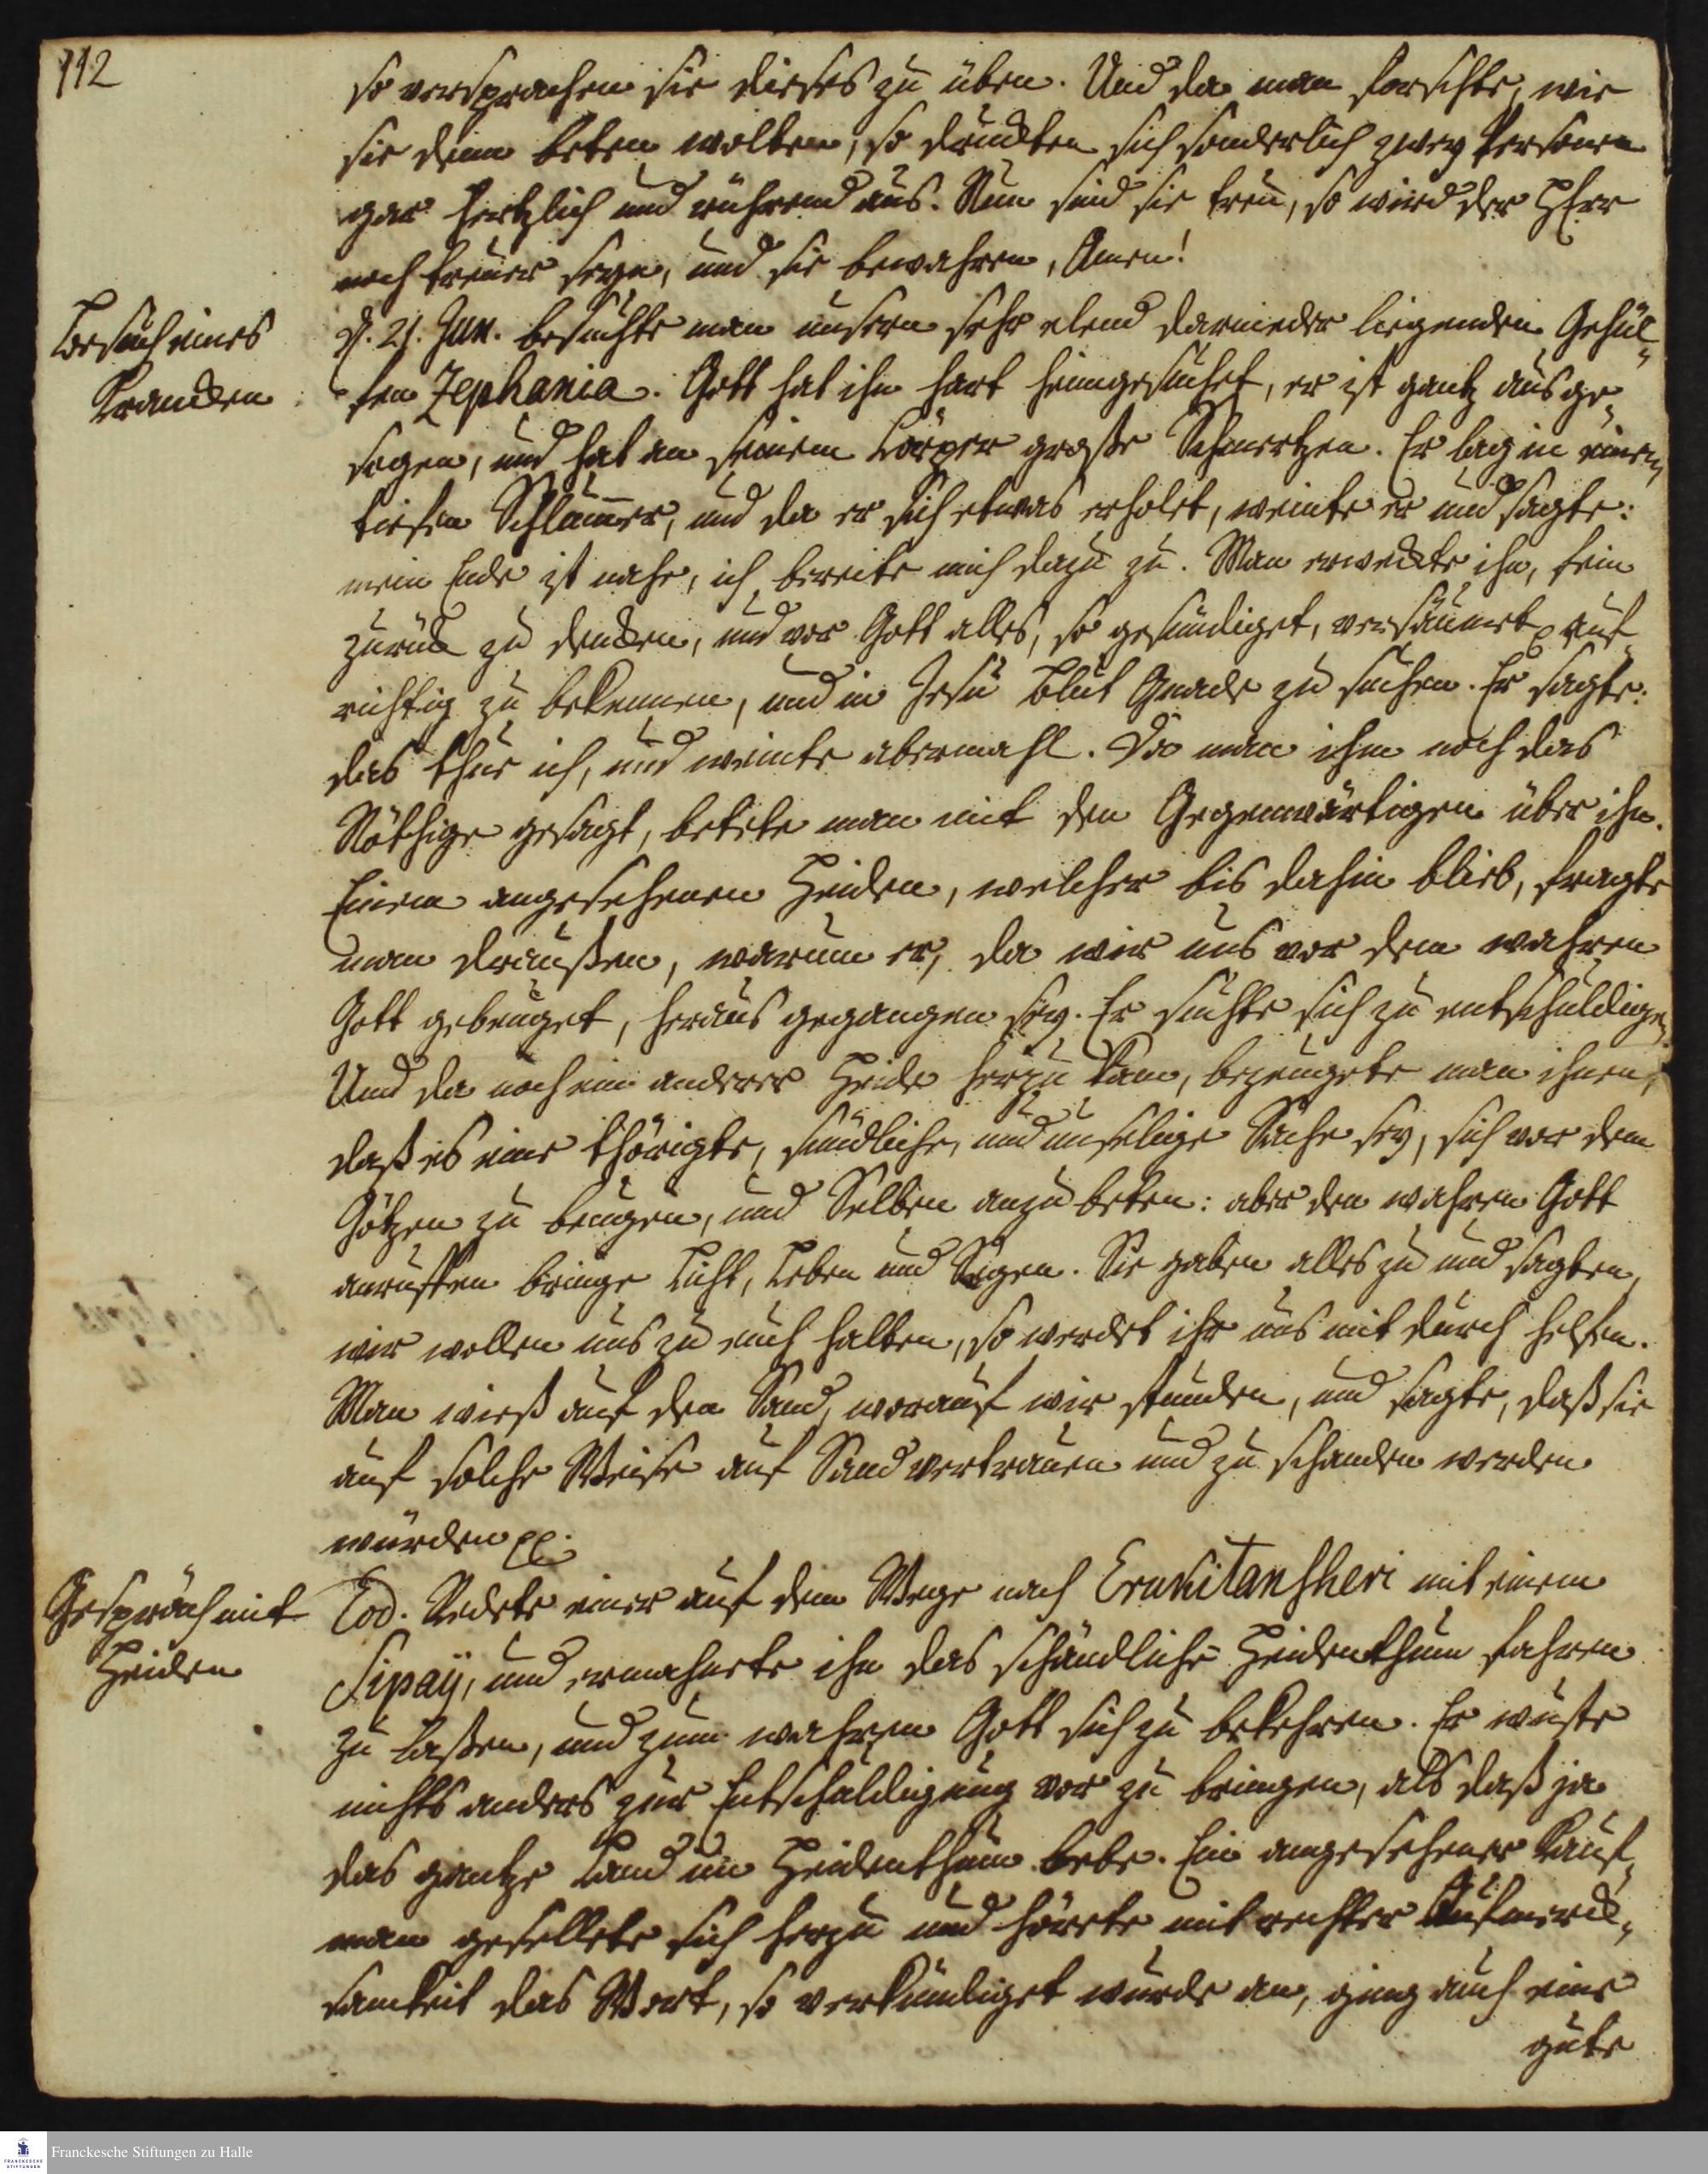 112
so versprachen sie dieses zu üben. Und da man forschte, wie
sie denn beten wolten, so druckten sich sonderlich zwey Personen
gar hertzlich und rührend aus. Nun sind sie treu, so wird der HErr
noch treuer seyn, und sie bewahren, Amen!
Besuch eines
Krancken
d. 21. Jun. besuchte man unsern sehr elend darnieder liegenden Gehül-
fen Zephania. Gott hat ihn hart heimgesuchet, er ist gantz ausge-
sogen, und hat an seinem Cörper große Schmertzen. Er lag in einem
tiefen Schlummer, und da er sich etwas erholet, weinte er und sagte:
mein Ende ist nahe, ich bereite mich dazu zu. Man erweckte ihn, fein
zurück zu dencken, und vor Gott alles, so gesündiget, versäumet p auf-
richtig zu bekennen, und in Jesu Blut Gnade zu suchen. Er sagte:
das thue ich, und weinte abermahl. Da man ihm noch das
Nöthige gesagt, betete man mit den Gegenwärtigen über ihn.
Einem angesehenen Heiden, welcher bis dahin blieb, fragte
man draußen, warum er, da wir uns vor dem wahren
Gott gebeuget, heraus gegangen sey. Er suchte sich zu entschuldigen.
Und da noch ein anderer Heide herzu kam, bezeugete man ihnen,
daß es eine thörigte, sündliche, und unselige Sache sey, sich vor dem
Götzen zu beugen, und Selben anzubeten: aber den wahren Gott
anruffen bringe Licht, Leben und Segen. Sie gaben alles zu und sagten,
wir wollen uns zu euch halten, so werdet ihr uns mit durch helfen.
Man wieß auf den Sand, worauf wir stunden, und sagte, daß sie
auf solche Weise auf Sand vertrauen und zu schanden werden
würden pp.
Gespräch mit
Heiden
Eod. Redete einer auf dem Wege nach Erukitanscheri mit einem
Sipaÿ, und ermahnete ihn das schändliche Heidenthum fahren
zu laßen, und zum wahren Gott sich zu bekehren. Er wuste
nichts anders zur Entschuldigung vor zu bringen, als daß ja
das gantze Land im Heidenthum lebe. Ein angesehener Kauf-
man gesellete sich herzu und hörete mit rechter Aufmerck-
samkeit das Wort, so verkündiget wurde an, ging auch eine
gute
Franckesche Stiftungen zu Halle